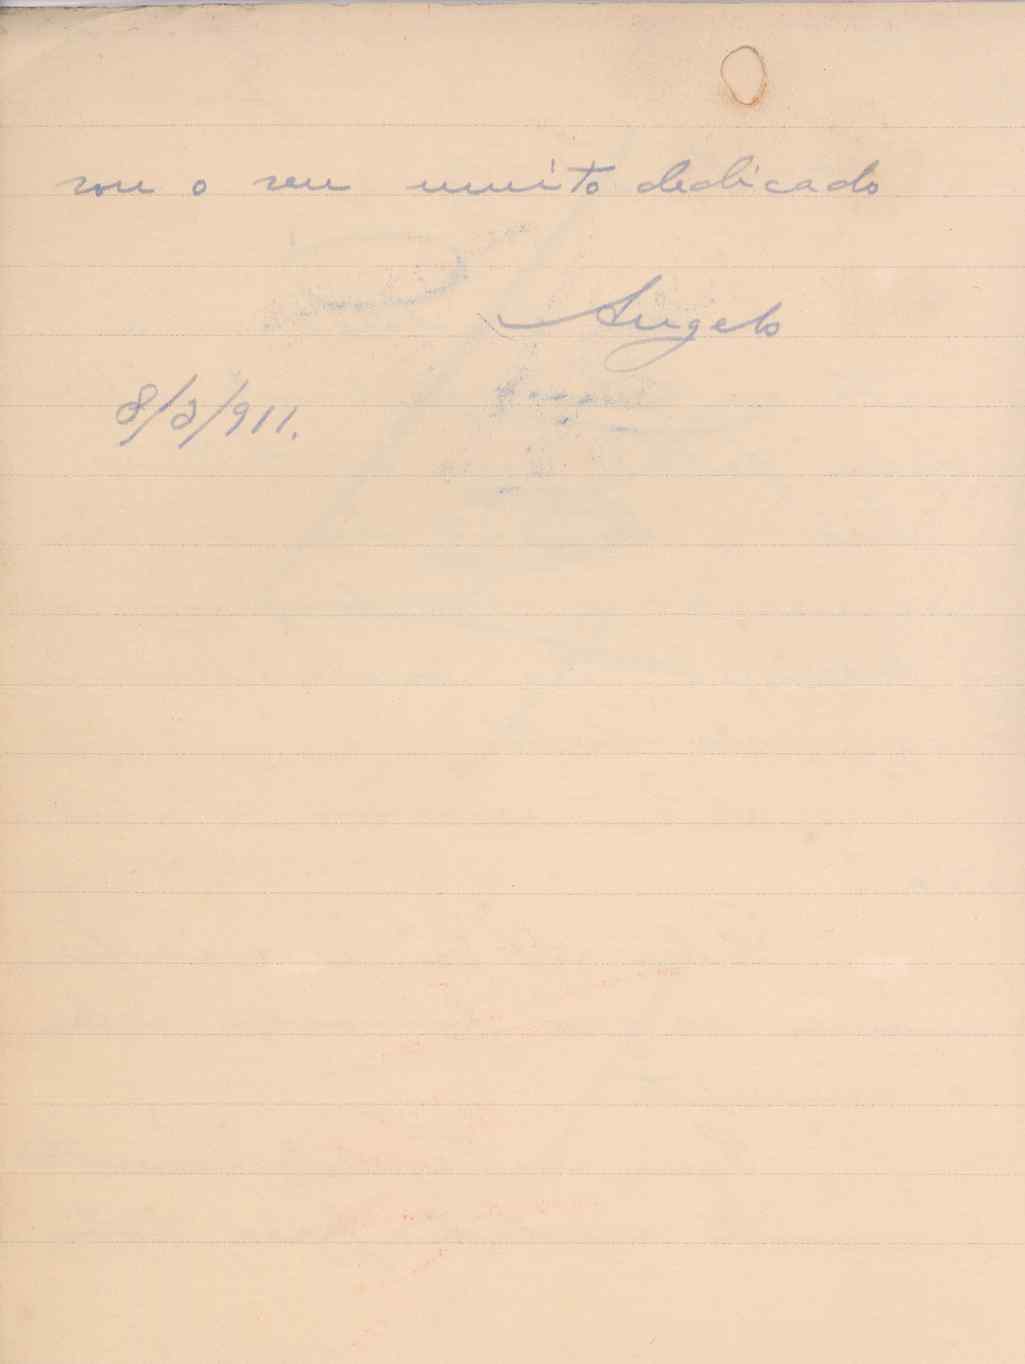 sou o seu muito dedicado
Angelo
8/2/911.